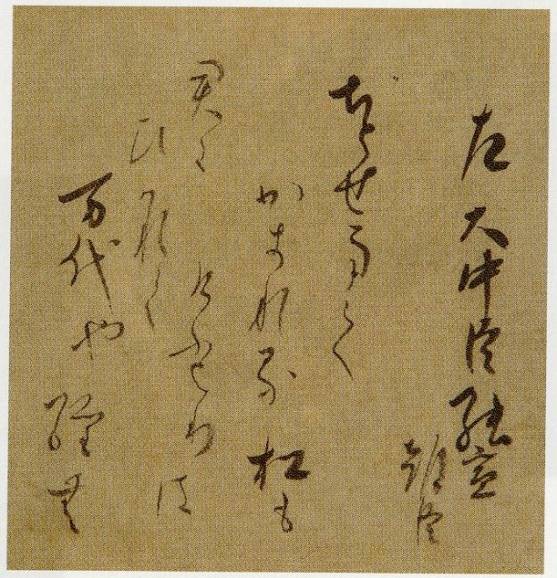 左 大中臣能宣
朝臣
ちとせまて
かきれる松も
けふよりは
君に
ひかれて
万代や経む